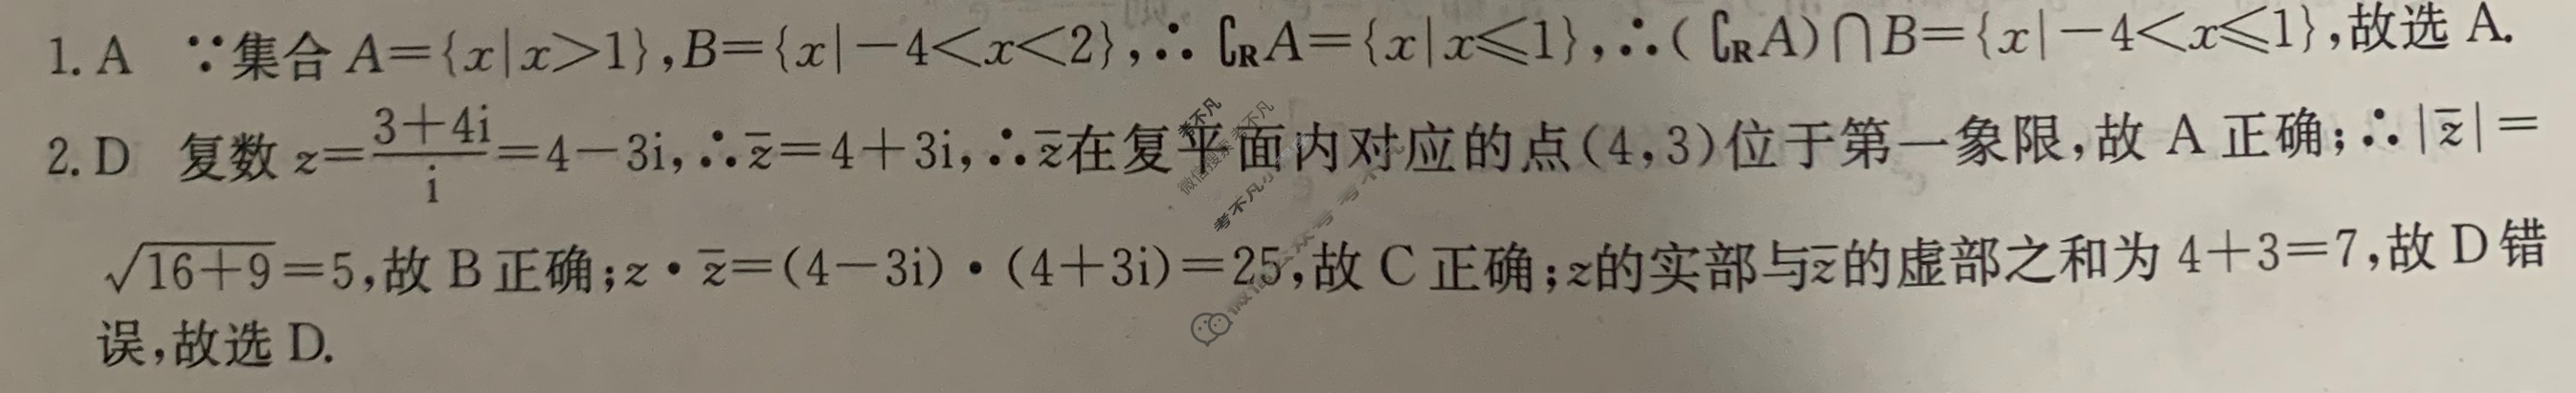 1. A ∵集合 A={x|x>1},B={x|-4<x<2},∴∁RA={x|x⩽1},∴(∁RA)∩B={x|-4<x⩽1},故选 A.
2. D 复数 z=(3+4i)/i=4-3i,∴z̅=4+3i,∴z̅在复平面内对应的点(4,3)位于第一象限,故 A 正确;∴|z̅|=
√(16+9)=5,故 B 正确;z·z̅=(4-3i)·(4+3i)=25,故 C 正确;z的实部与z̅的虚部之和为 4+3=7,故 D 错
误,故选 D.
考不凡